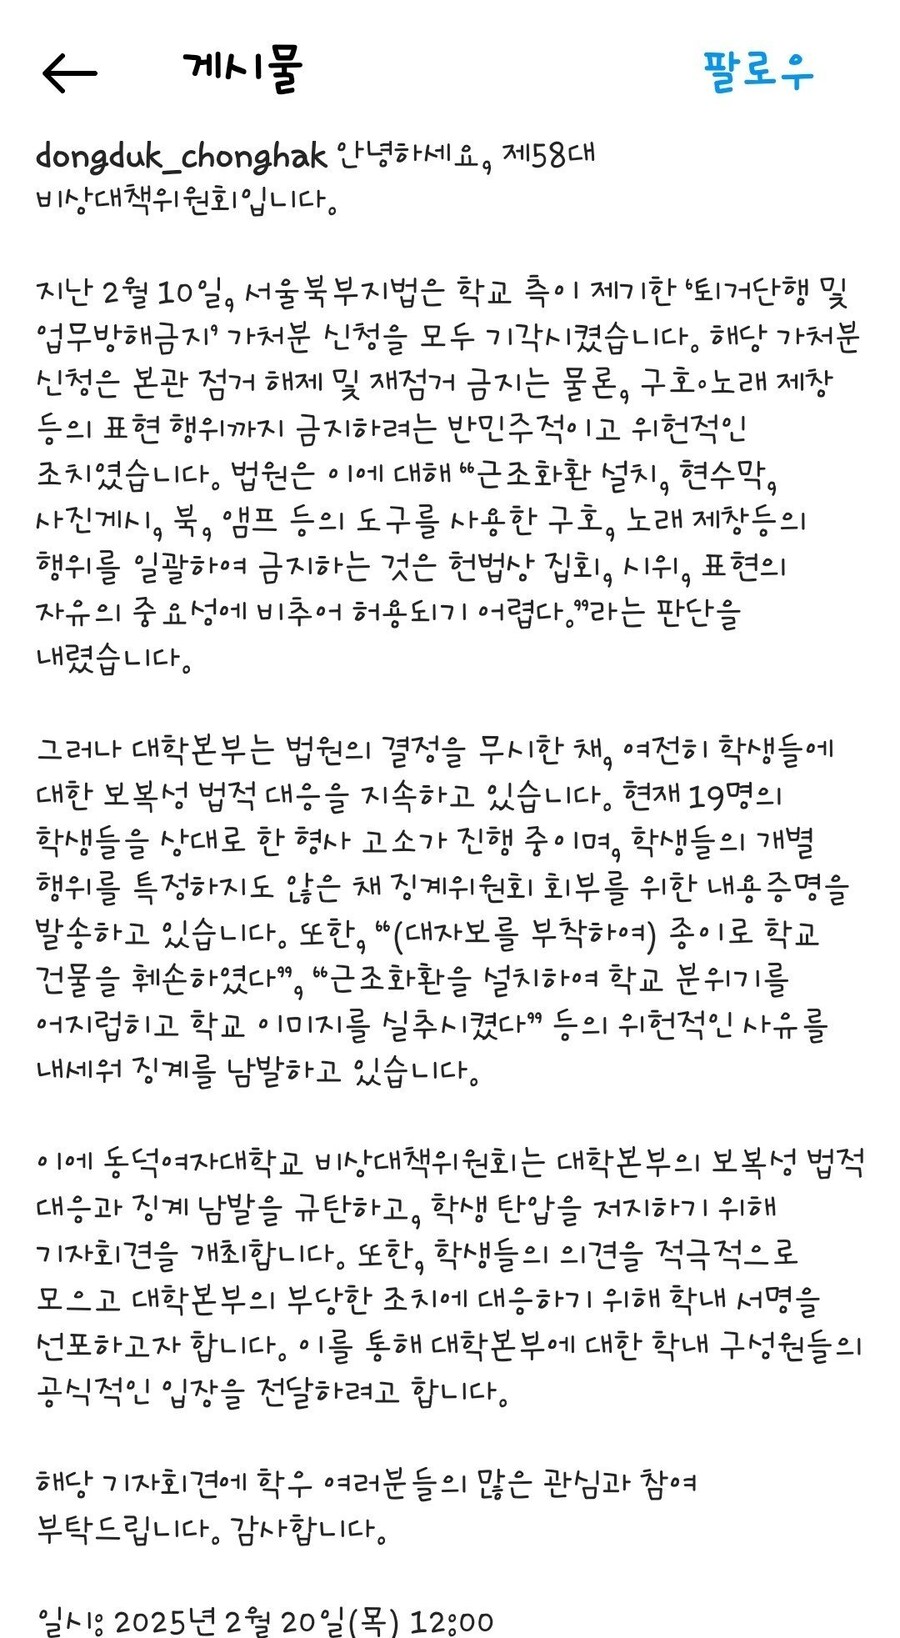 게시물 팔로우
dongduk_chonghak 안녕하세요, 제58대
비상대책위원회입니다.
지난 2월 10일, 서울북부지법은 학교 측이 제기한 ‘퇴거단행 및
업무방해금지’ 가처분 신청을 모두 기각시켰습니다. 해당 가처분
신청은 본관 점거 해제 및 재점거 금지는 물론, 구호∘노래 제창
등의 표현 행위까지 금지하려는 반민주적이고 위헌적인
조치였습니다. 법원은 이에 대해 “근조화환 설치, 현수막,
사진게시, 북, 앰프 등의 도구를 사용한 구호, 노래 제창등의
행위를 일괄하여 금지하는 것은 헌법상 집회, 시위, 표현의
자유의 중요성에 비추어 허용되기 어렵다.”라는 판단을
내렸습니다.
그러나 대학본부는 법원의 결정을 무시한 채, 여전히 학생들에
대한 보복성 법적 대응을 지속하고 있습니다. 현재 19명의
학생들을 상대로 한 형사 고소가 진행 중이며, 학생들의 개별
행위를 특정하지도 않은 채 징계위원회 회부를 위한 내용증명을
발송하고 있습니다. 또한, “(대자보를 부착하여) 종이로 학교
건물을 훼손하였다”, “근조화환을 설치하여 학교 분위기를
어지럽히고 학교 이미지를 실추시켰다” 등의 위헌적인 사유를
내세워 징계를 남발하고 있습니다.
이에 동덕여자대학교 비상대책위원회는 대학본부의 보복성 법적
대응과 징계 남발을 규탄하고, 학생 탄압을 저지하기 위해
기자회견을 개최합니다. 또한, 학생들의 의견을 적극적으로
모으고 대학본부의 부당한 조치에 대응하기 위해 학내 서명을
선포하고자 합니다. 이를 통해 대학본부에 대한 학내 구성원들의
공식적인 입장을 전달하려고 합니다.
해당 기자회견에 학우 여러분들의 많은 관심과 참여
부탁드립니다. 감사합니다.
일시: 2025년 2월 20일(목) 12:00